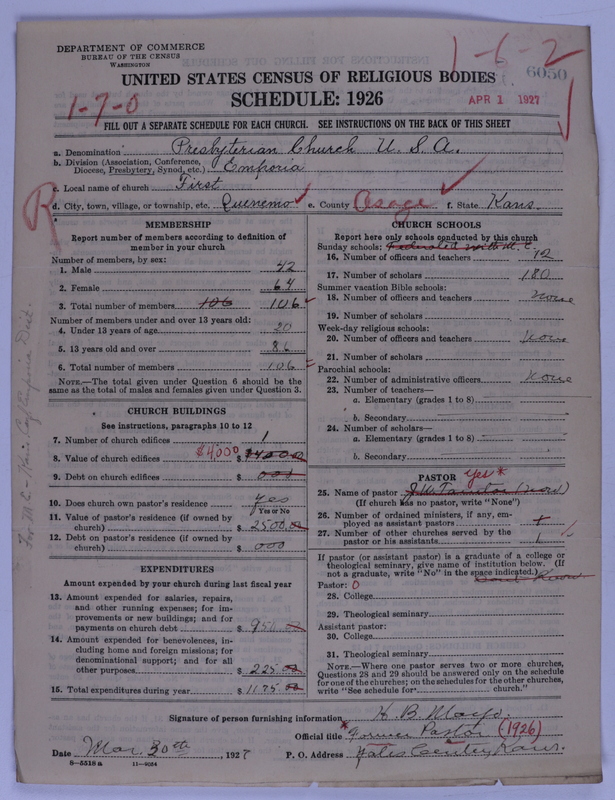 DEPARTMENT OF COMMERCE
BUREAU OF THE CENSUS
WASHINGTON
1-6-2
6050
UNITED STATES CENSUS OF RELIGIOUS BODIES
SCHEDULE: 1926
1-7-0
APR 1 1927
FILL OUT A SEPARATE SCHEDULE FOR EACH CHURCH. SEE INSTRUCTIONS ON THE BACK OF THIS SHEET
a. Denomination Presbyterian Church U. S. A.
b. Division (Association, Conference, Diocese, Presbytery, Synod, etc.) Emporia
c. Local name of church First
d. City, town, village, or township, etc. Quenemo e. County Osage f. State Kans.
R
MEMBERSHIP
Report number of members according to definition of
member in your church
Number of members, by sex:
1. Male 42
2. Female 64
3. Total number of members 106 106
Number of members under and over 13 years old:
4. Under 13 years of age 20
5. 13 years old and over 86
6. Total number of members 106
NOTE.—The total given under Question 6 should be
same as the total of males and females given under Question 3.
CHURCH BUILDINGS
See instructions, paragraphs 10 to 12
7. Number of church edifices 1
8. Value of church edifices $4000 $4000.00
9. Debt on church edifices $ 000
10. Does church own pastor's residence? yes
Yes or No
11. Value of pastor's residence (if owned by
church) $ 2500.00
12. Debt on pastor's residence (if owned by
church) $ 000
EXPENDITURES
Amount expended by your church during last fiscal year
13. Amount expended for salaries, repairs,
and other running expenses; for im-
provements or new buildings; and for
payments on church debt $ 950.00
14. Amount expended for benevolences, in-
cluding home and foreign missions; for
denominational support; and for all
other purposes $ 225.00
15. Total expenditures during year $ 1175.00
CHURCH SCHOOLS
Report here only schools conducted by this church
Sunday schools: Federated with M. E.
16. Number of officers and teachers 12
17. Number of scholars 180
Summer vacation Bible schools:
18. Number of officers and teachers None
19. Number of scholars
Week-day religious schools:
20. Number of officers and teachers None
21. Number of scholars
Parochial schools:
22. Number of administrative officers None
23. Number of teachers—
a. Elementary (grades 1 to 8)
b. Secondary
24. Number of scholars—
a. Elementary (grades 1 to 8)
b. Secondary
PASTOR yes*
25. Name of pastor
(If church has no pastor, write "None")
26. Number of ordained ministers, if any, em-
ployed as assistant pastors
27. Number of other churches served by the
pastor or his assistants 1
If pastor (or assistant pastor) is a graduate of a college or
theological seminary, give name of institution below. (If
not a graduate, write "No" in the space indicated.)
Pastor: 0
28. College
29. Theological seminary
Assistant pastor:
30. College
31. Theological seminary
NOTE.—Where one pastor serves two or more churches,
Questions 28 and 29 should be answered only on the schedule
for one of the churches; on the schedules for the other churches,
write "See schedule for church."
Signature of person furnishing information H. B. Mayo.
Official title *Former Pastor (1926)
Date Mar. 30th, 1927 P. O. Address Yates Center, Kans.
8—5518 a 11—9034